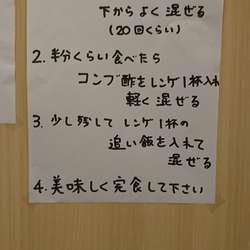 下からよく混ぜる
(20回くらい)
2. 半分くらい食べたら
コンブ酢をレンゲ1杯入れ
軽く混ぜる
3. 少し残してレンゲ1杯の
追い飯を入れて
混ぜる
4. 美味しく完食して下さい